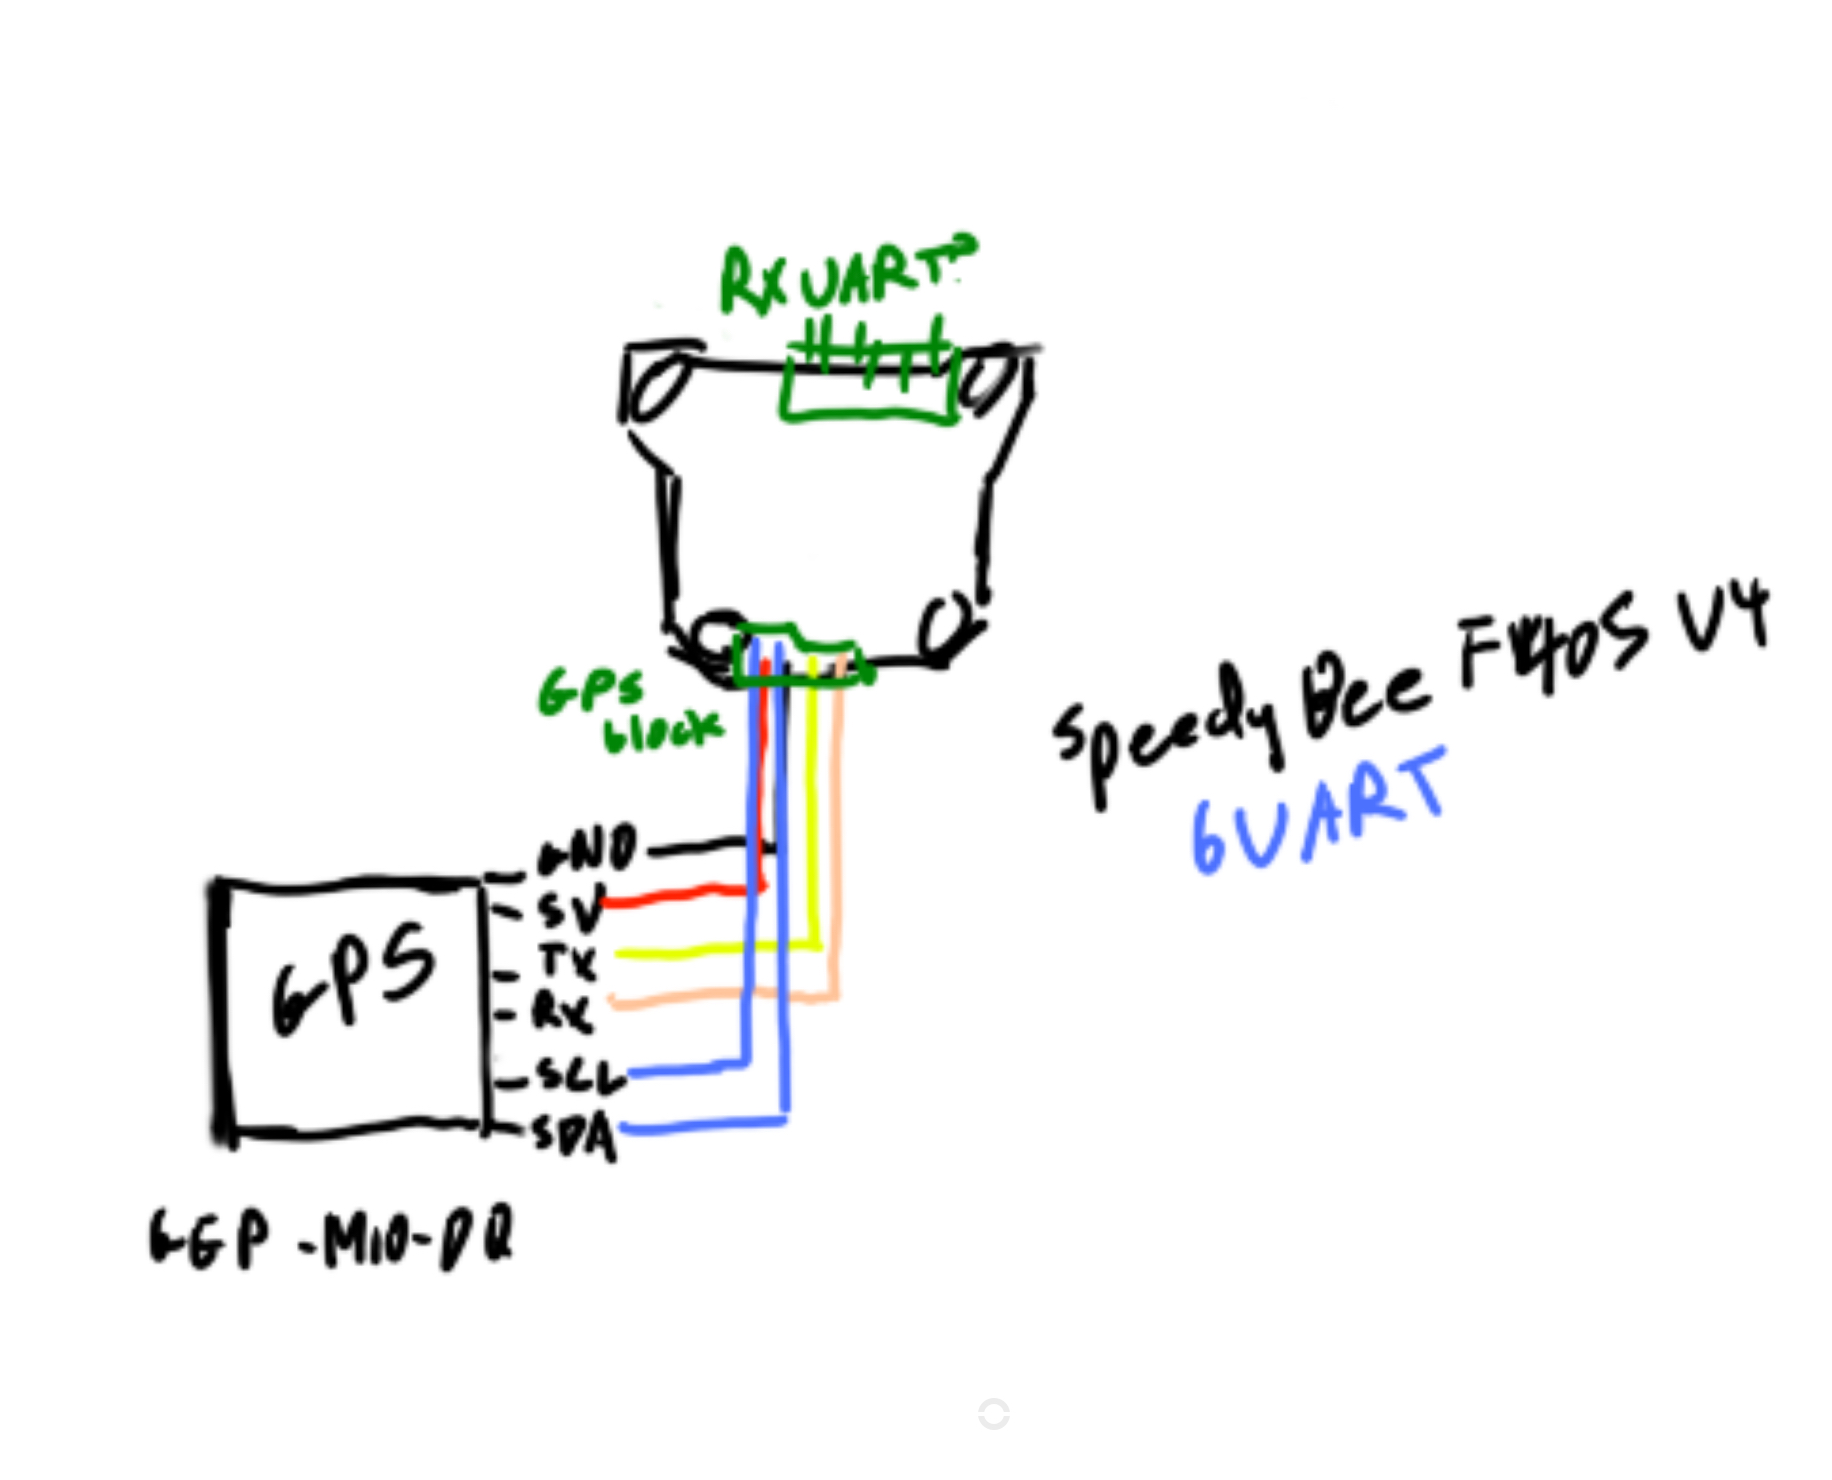 RX UART?
GPS
block
Speedy Bee F405 V4
6UART
GND
5V
TX
RX
SCL
SDA
GPS
GEP-M10-DQ